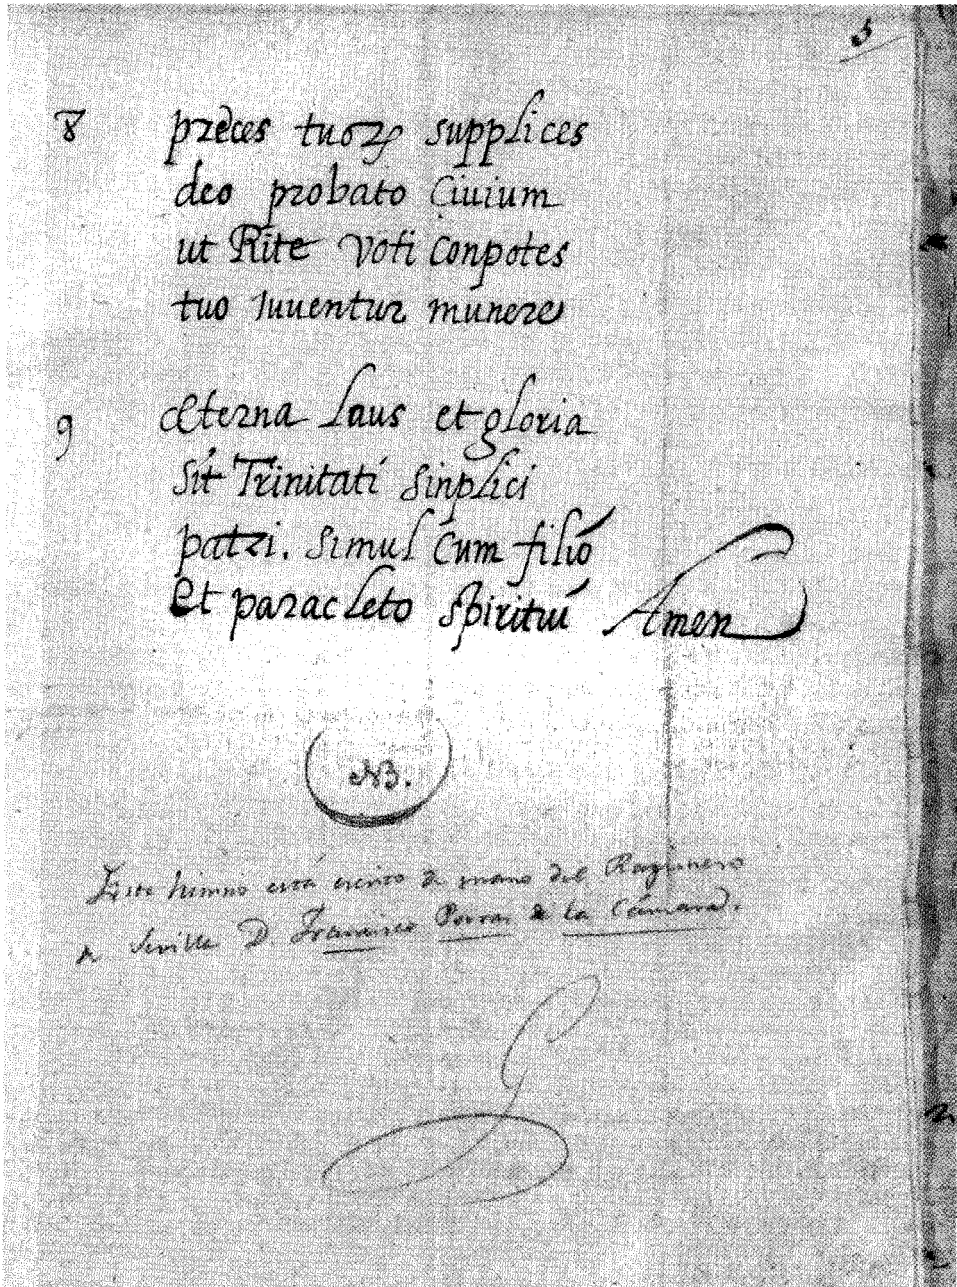 5
8 preces tuoꝝ supplices
deo probato Ciuium
ut Rite voti Conpotes
tuo Iuuentur munere
9 æterna laus et gloria
Sit Trinitati Sinplici
patri. simul Cum filio
Et paracleto spiritui Amen
NB.
Este himno está escrito de mano del Razionero
de Sevilla D. Francisco Porras de la Cámara.